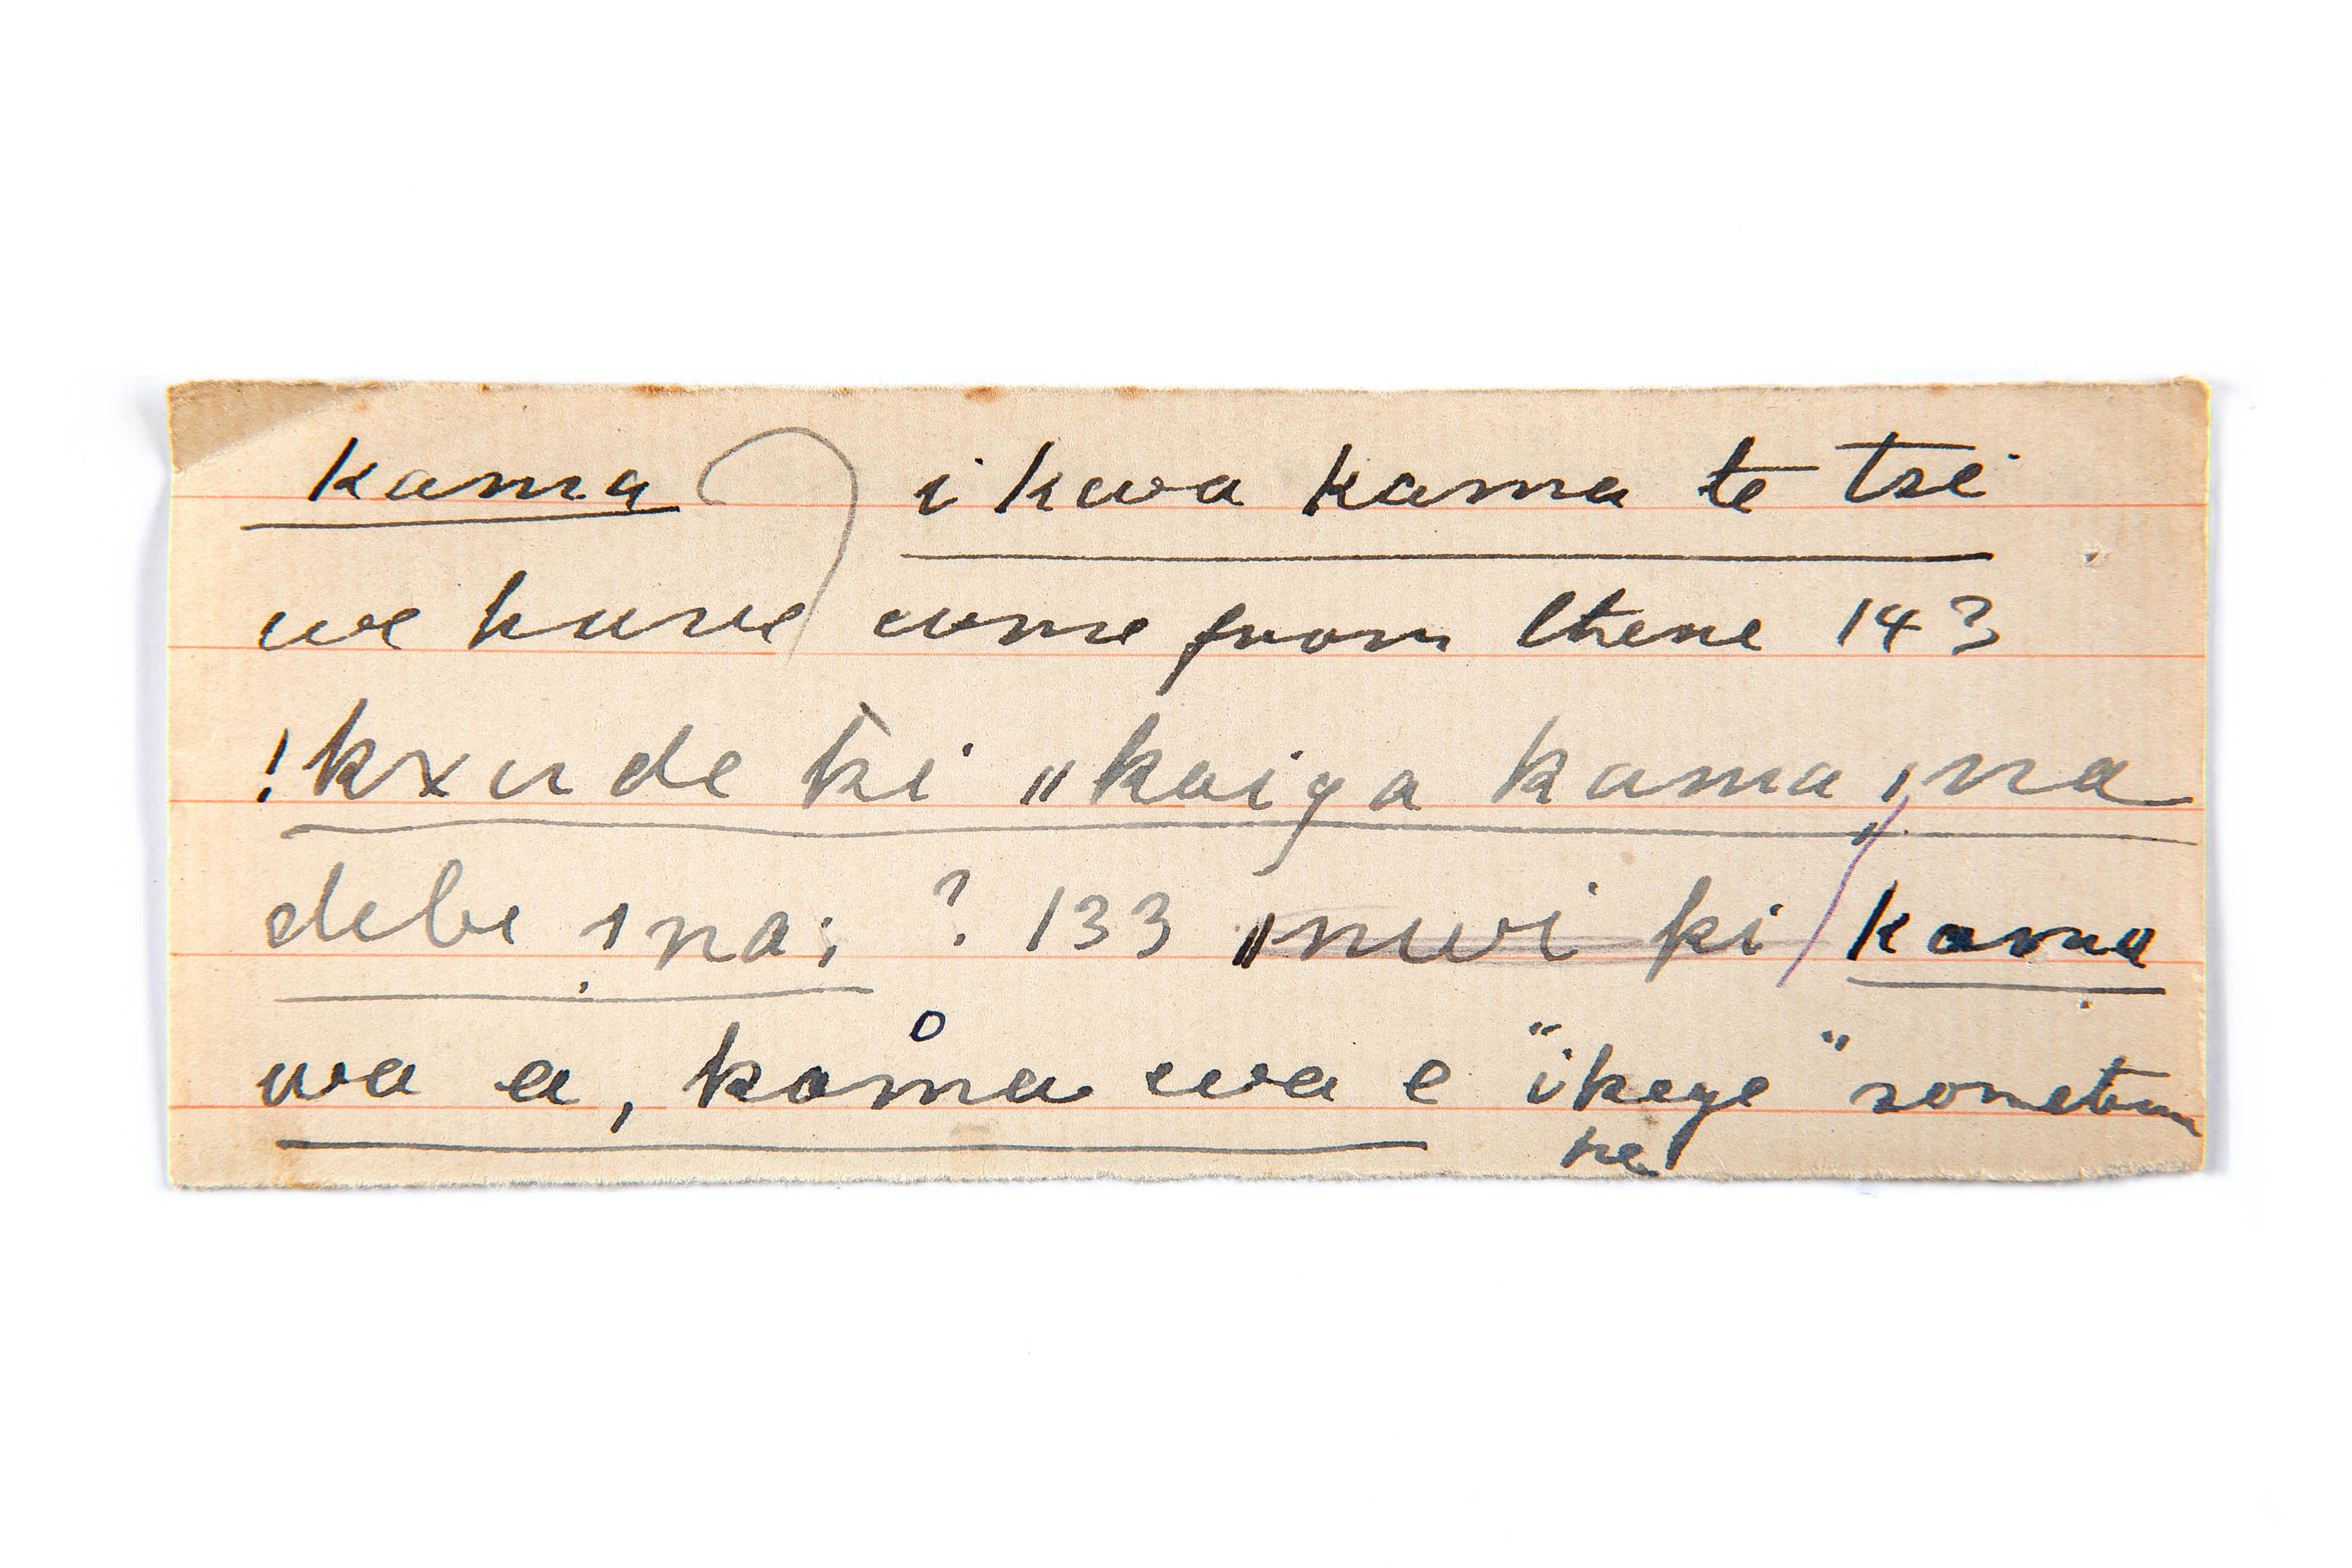 kama i kwa kama te tsi
we have come from there 143
!kxude ki ||kaiga kama |na
debe |na: ? 133 ||nwi ki / kama
wa a, kama wa e "ikeye" sometim
he